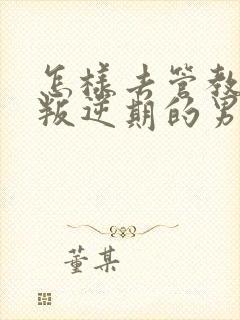 怎样去管教
叛逆期的男
董某